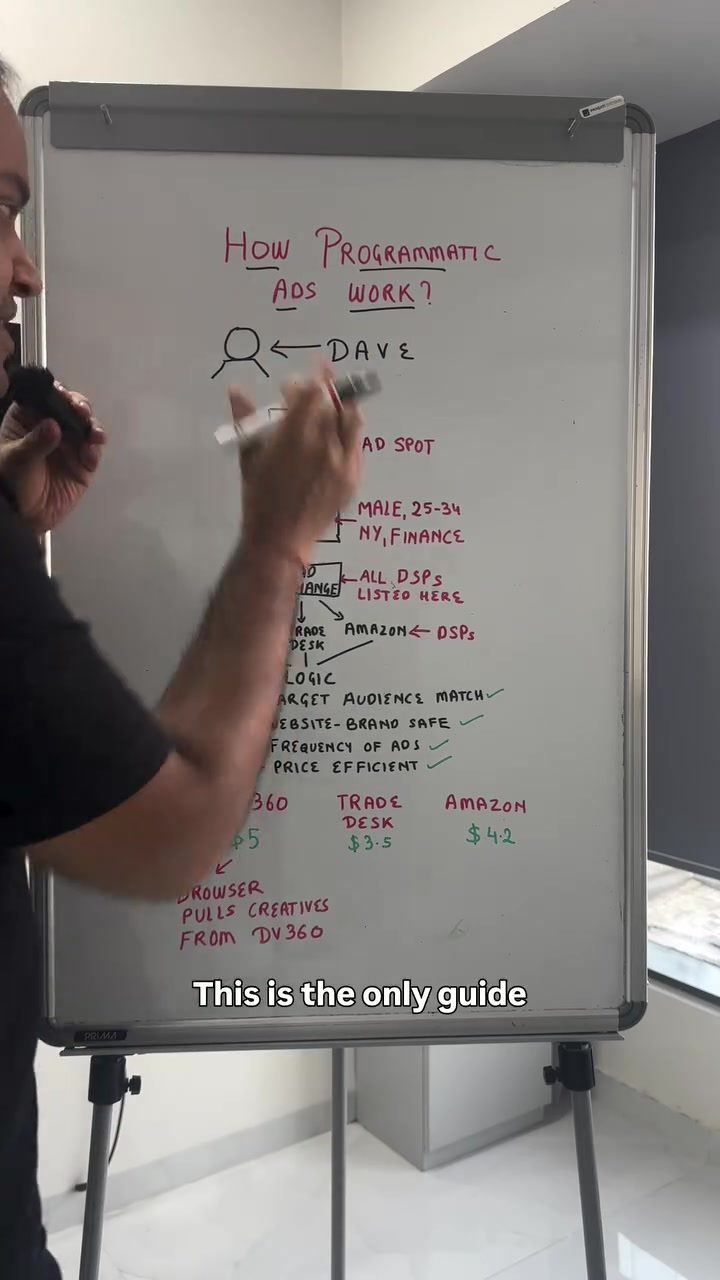 HOW PROGRAMMATIC
ADS WORK?
DAVE
AD SPOT
MALE, 25-34
NY, FINANCE
ALL DSPs
LISTED HERE
AMAZON DSPs
DESK
LOGIC
AUDIENCE MATCH
BRAND SAFE
FREQUENCY OF ADS
PRICE EFFICIENT
360 TRADE AMAZON
DESK
$5 $3.5 $4.2
BROWSER
PULLS CREATIVES
FROM DV360
This is the only guide
PRIMA